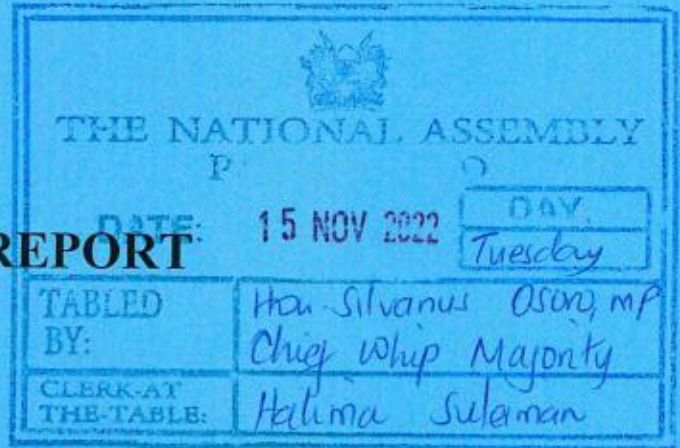 THE NATIONAL ASSEMBLY
P O
DATE: 15 NOV 2022 DAY.
Tuesday
REPORT
TABLED BY: Hon. Silvanus Osoro, MP
Chief Whip Majority
CLERK-AT THE-TABLE: Halima Suleman